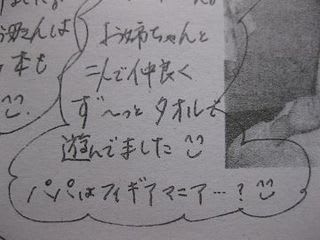 お姉ちゃんと
二人で仲良く
ず〜っとタオルで
遊んでました
パパはフィギアマニア…?
さんは
本も